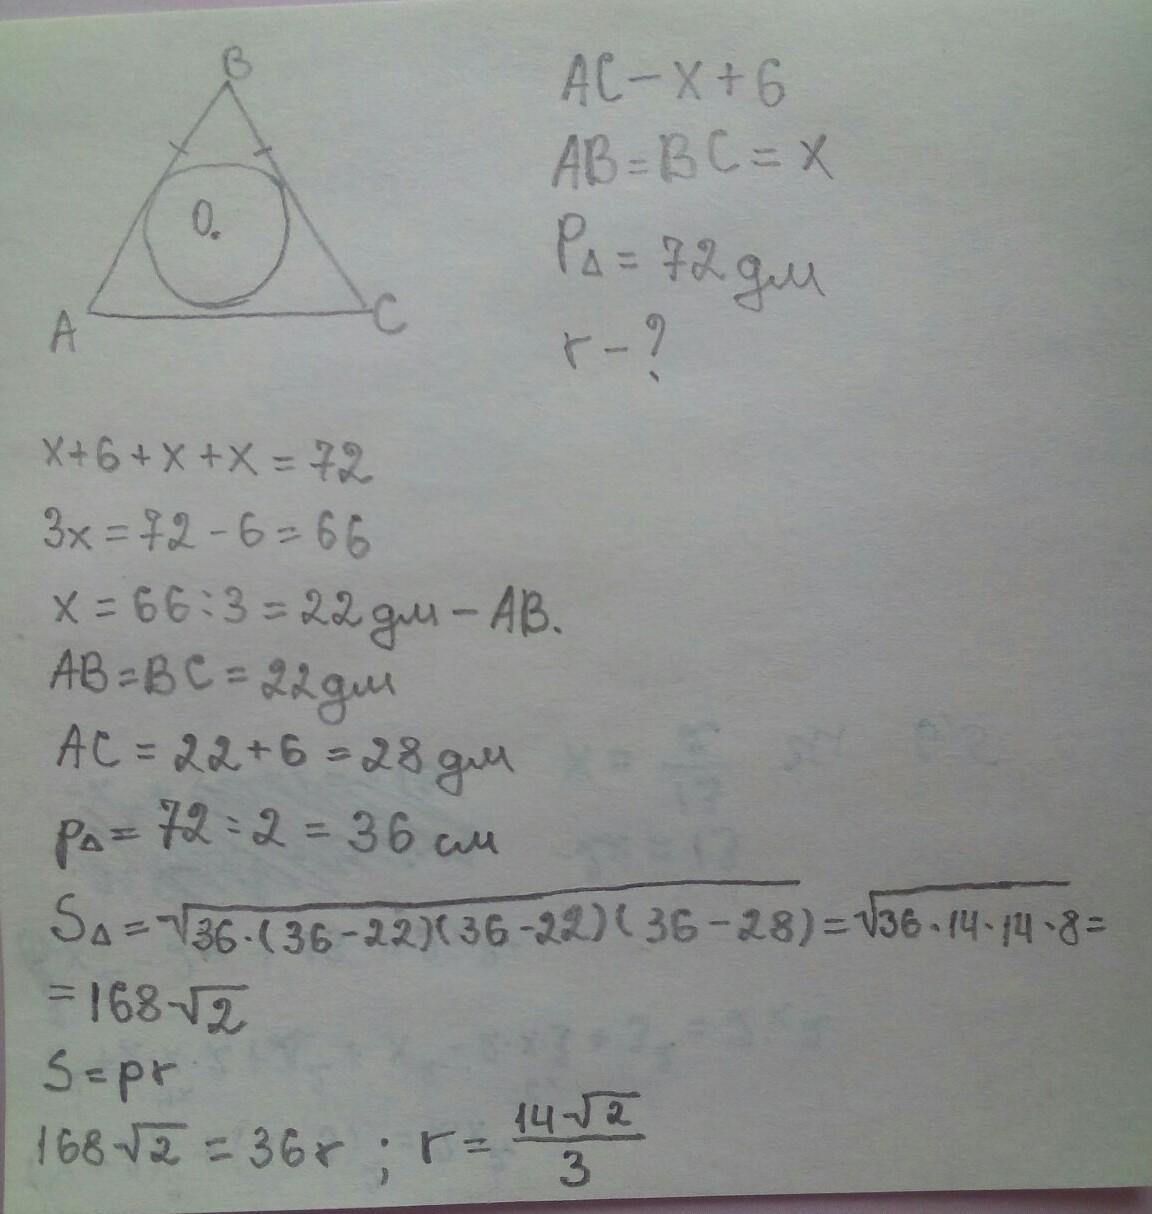 B
O.
A
C
AC - x + 6
AB = BC = x
P△ = 72 дм
r - ?
x + 6 + x + x = 72
3x = 72 - 6 = 66
x = 66 : 3 = 22 дм - AB.
AB = BC = 22 дм
AC = 22 + 6 = 28 дм
p△ = 72 : 2 = 36 см
S△ = √36·(36-22)(36-22)(36-28) = √36·14·14·8 =
= 168√2
S = pr
168√2 = 36r ; r = 14√2/3